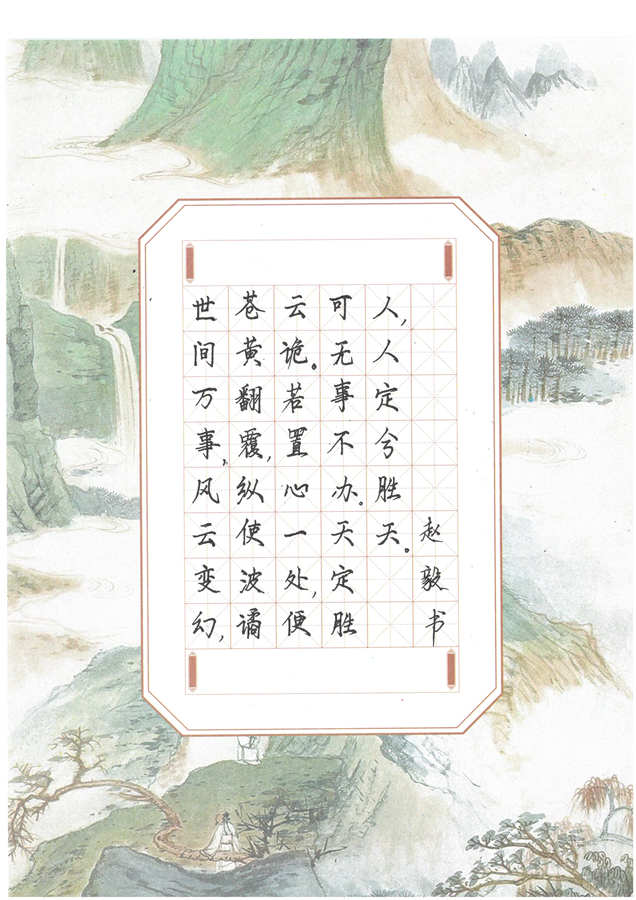 世间万事,风云变幻,
苍黄翻覆,纵使波谲
云诡。若置心一处,便
可无事不办。天定胜
人,人定兮胜天。
赵毅书